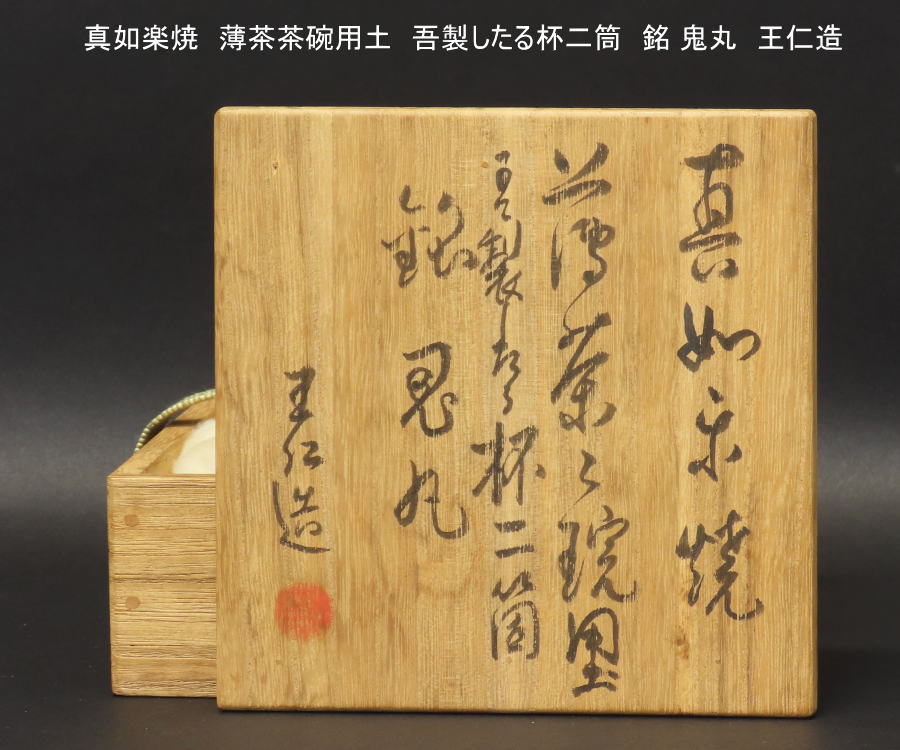 真如楽焼 薄茶茶碗用土 吾製したる杯二筒 銘 鬼丸 王仁造
真如楽焼
薄茶々琓用土
吾製したる杯二箇
銘 鬼丸
王仁造